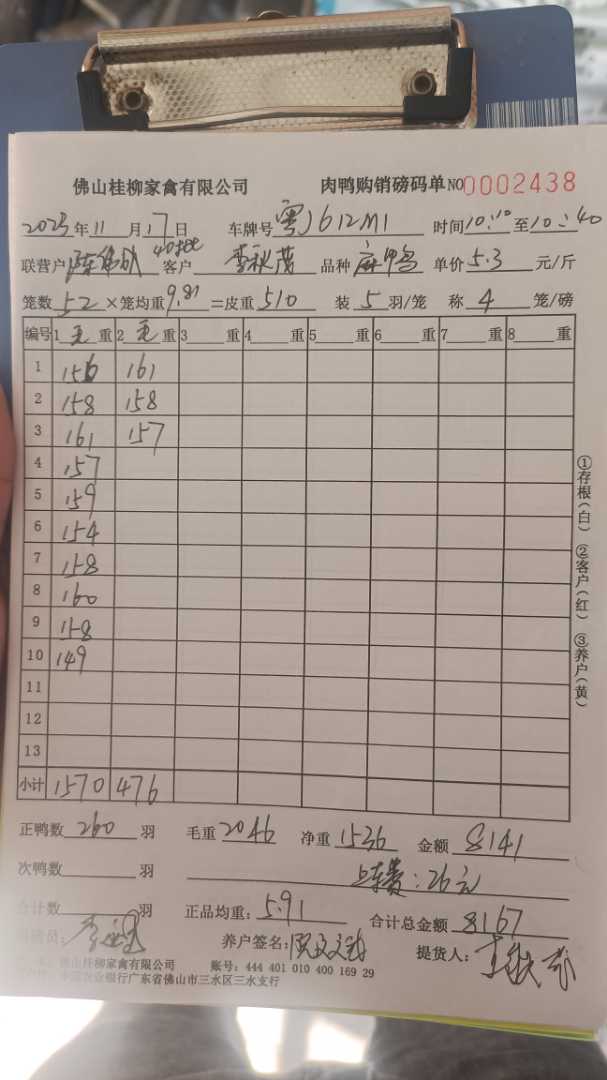 佛山桂柳家禽有限公司 肉鸭购销磅码单 NO0002438
2023年11月17日 车牌号粤J612M1 时间10:10至10:40
联营户 客户李秋茂 品种麻鸭 单价5.3元/斤
笼数52×笼均重9.81=皮重510 装5羽/笼 称4笼/磅
编号 1毛重 2毛重 3重 4重 5重 6重 7重 8重
1 156 161
2 158 158
3 161 157
4 157
5 159
6 154
7 158
8 160
9 158
10 149
11
12
13
小计 1570 476
正鸭数260羽 毛重2046 净重1536 金额8141
次鸭数 羽 上车费:26元
合计数 羽 正品均重:5.91 合计总金额8167
养户签名: 提货人:
佛山桂柳家禽有限公司 账号:444 401 010 400 169 29
农业银行广东省佛山市三水区三水支行
①存根(白) ②客户(红) ③养户(黄)